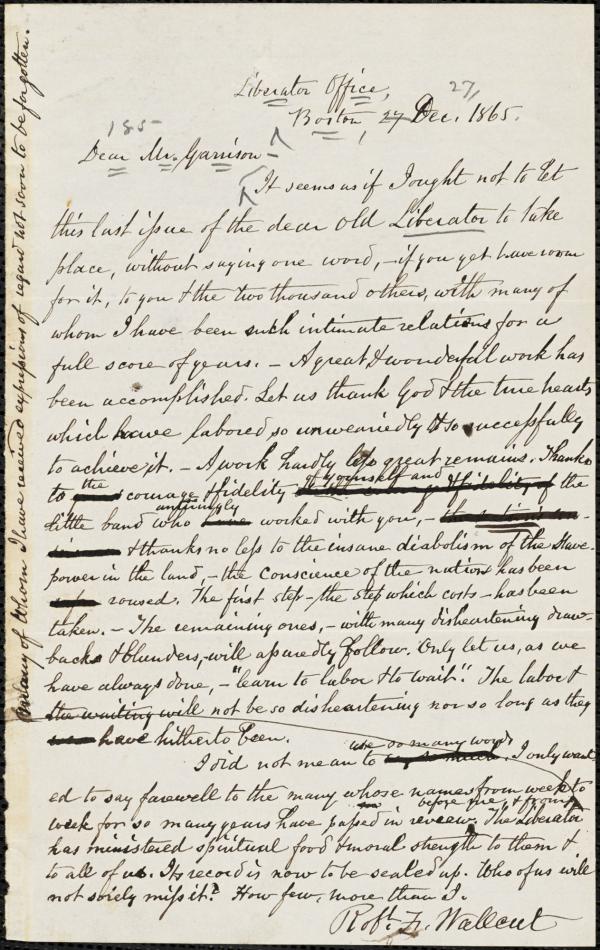 Liberator Office,
27,
Boston, 27 Dec. 1865.
185-
Dear Mr. Garrison -
It seems as if I ought not to let
this last issue of the dear old Liberator to take
place, without saying one word, - if you yet have room
for it, to you & the two thousand others, with many of
whom I have been in such intimate relations for a
full score of years. - A great & wonderful work has
been accomplished. Let us thank God & the true hearts
which have labored so unweariedly & so successfully
to achieve it. - A work hardly less great remains. Thanks
to the courage & fidelity of yourself and the
little band who unfailingly worked with you, -
& thanks no less to the insane diabolism of the Slave-
power in the land, - the conscience of the nation has been
roused. The first step - the step which costs - has been
taken. - The remaining ones, - with many disheartening draw-
backs & blunders, - will assuredly follow. Only let us, as we
have always done, - "learn to labor & to wait". The labor &
the waiting will not be so disheartening nor so long as they
have hitherto been.
I did not mean to use so many words. I only want-
ed to say farewell to the many whose names from week to
week for so many years have passed in review before me, & from
many of whom I have received expressions of regard not soon to be forgotten.
The Liberator
has ministered spiritual food & moral strength to them &
to all of us. Its record is now to be sealed up. Who of us will
not sorely miss it? How few, more than I.
Robt. F. Wallcut